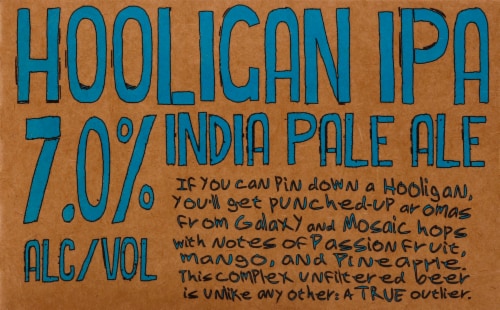 HOOLIGAN IPA
7.0%
ALC/VOL
INDIA PALE ALE
If you can pin down a Hooligan,
You'll get punched-up aromas
from Galaxy and Mosaic hops
with notes of Passion fruit,
mango, and Pineapple.
This complex unfiltered beer
is unlike any other: A TRUE outlier.